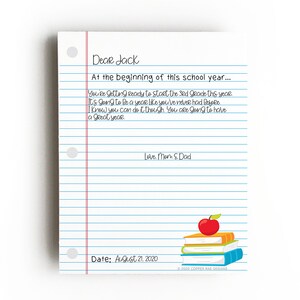 Dear Jack
At the beginning of this school year...
You're getting ready to start the 3rd Grade this year.
It's going to be a year like you've never had before.
I know you can do it though. You are going to have
a great year.
Love Mom & Dad
Date: August 21, 2020